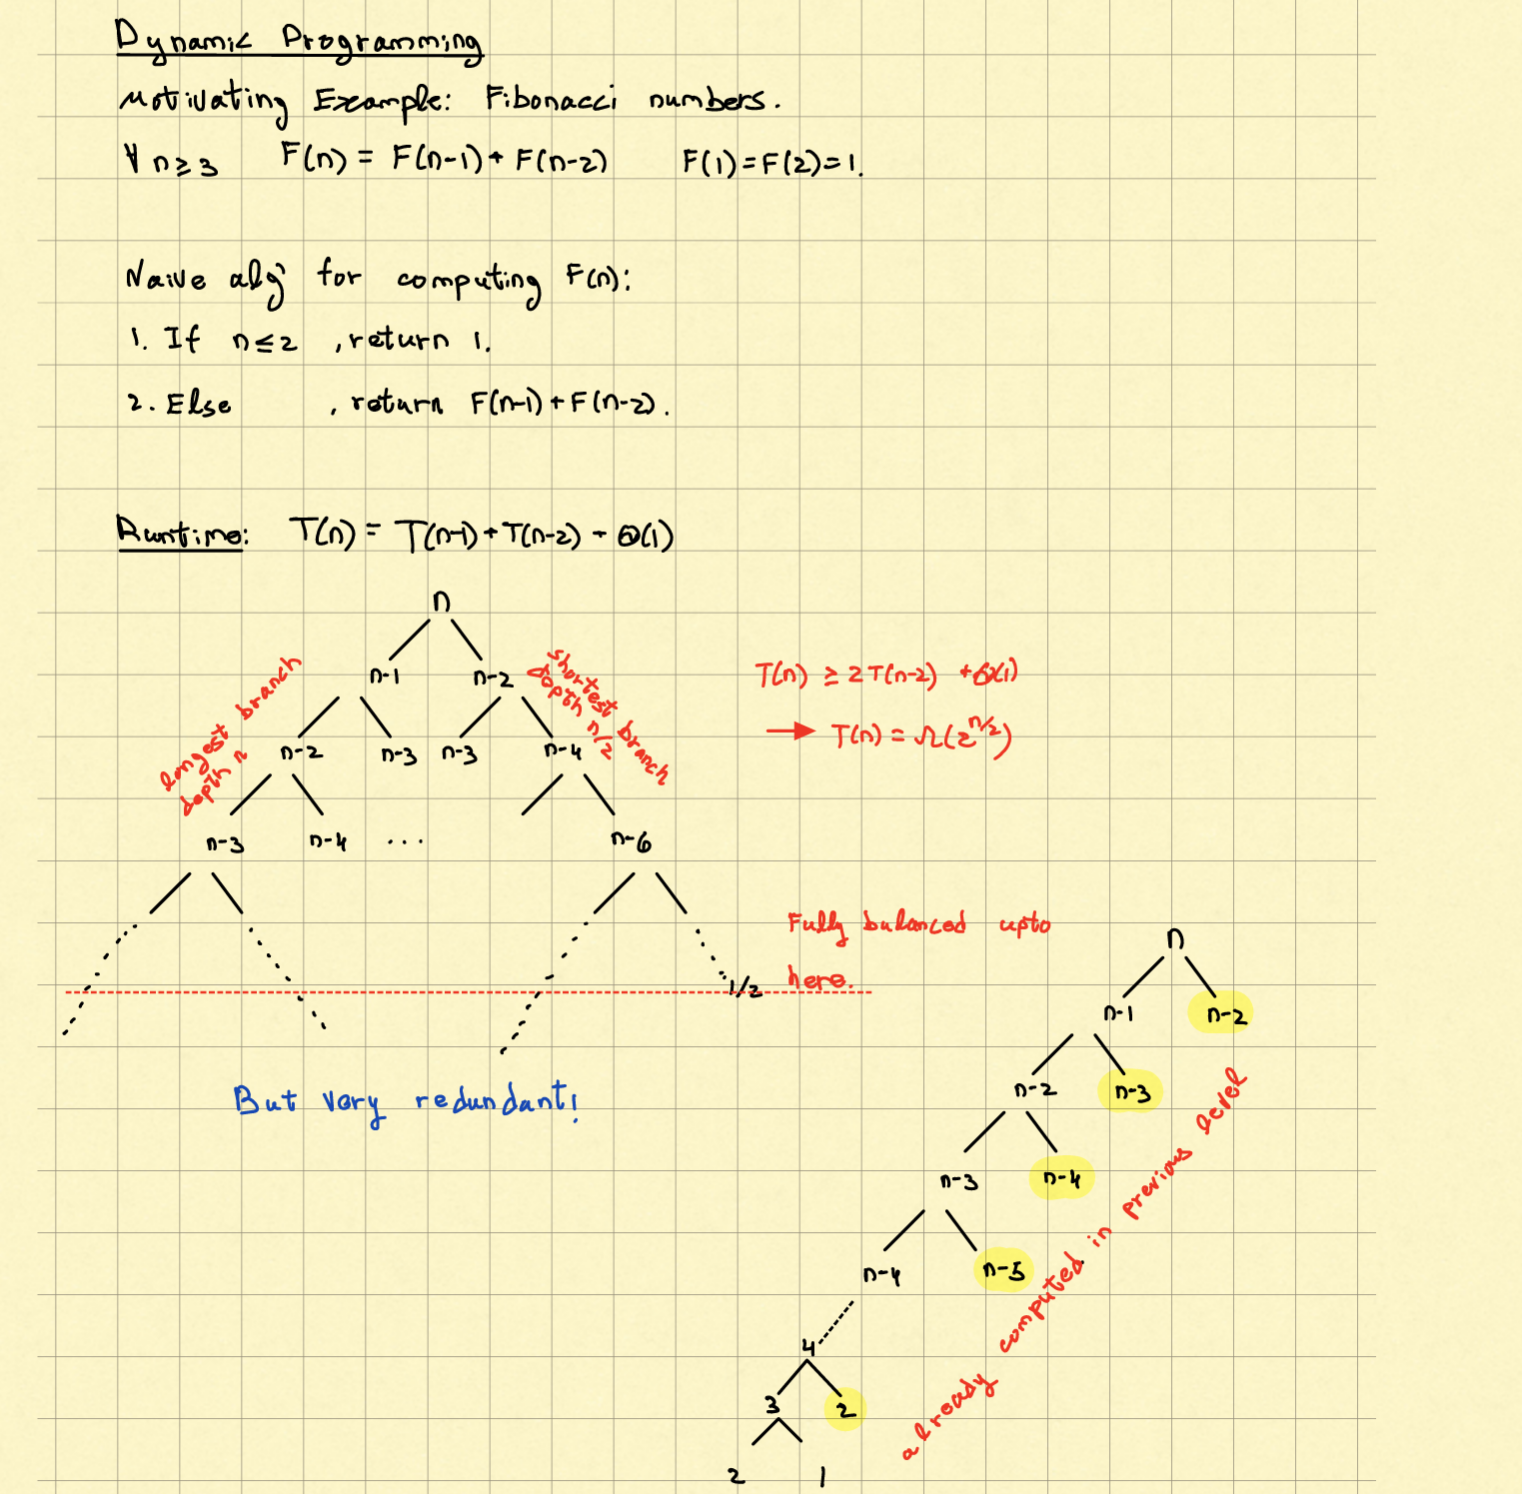 Dynamic Programming
Motivating Example: Fibonacci numbers.
∀ n≥3 F(n) = F(n-1) + F(n-2) F(1)=F(2)=1.
Naive alg' for computing F(n):
1. If n≤2 , return 1.
2. Else , return F(n-1)+F(n-2).
Runtime: T(n) = T(n-1)+T(n-2) + Θ(1)
n
n-1 n-2
longest branch
depth n
shortest branch
depth n/2
n-2 n-3 n-3 n-4
n-3 n-4 ... n-6
1/2
T(n) ≥ 2T(n-2) + Θ(1)
→ T(n) = Ω(2^{n/2})
Fully balanced upto
here.
But very redundant!
n
n-1 n-2
n-2 n-3
n-3 n-4
n-4 n-5
4
3 2
2 1
already computed in previous level